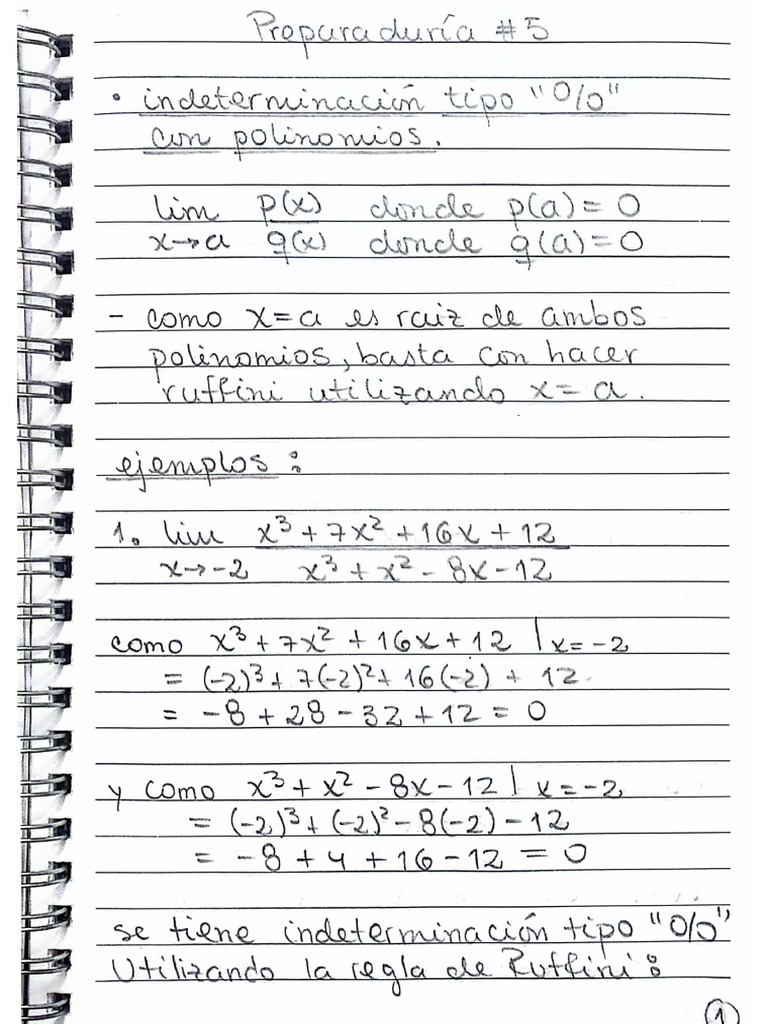 Preparaduría #5
• indeterminación tipo "0/0"
con polinomios.
lim p(x) donde p(a) = 0
x→a q(x) donde q(a) = 0
- como x=a es raiz de ambos
polinomios, basta con hacer
ruffini utilizando x = a.
ejemplos:
1. lim x³ + 7x² + 16x + 12
x→-2 x³ + x² - 8x - 12
como x³ + 7x² + 16x + 12 | x = -2
= (-2)³ + 7(-2)² + 16(-2) + 12
= -8 + 28 - 32 + 12 = 0
y como x³ + x² - 8x - 12 | x = -2
= (-2)³ + (-2)² - 8(-2) - 12
= -8 + 4 + 16 - 12 = 0
se tiene indeterminación tipo "0/0"
Utilizando la regla de Ruffini:
1